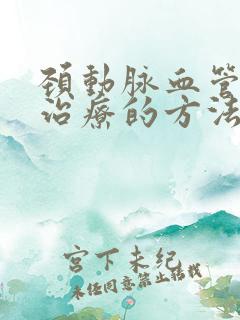 頚動脉血管
治療的方法
宫下未纪
未经同意禁止转载